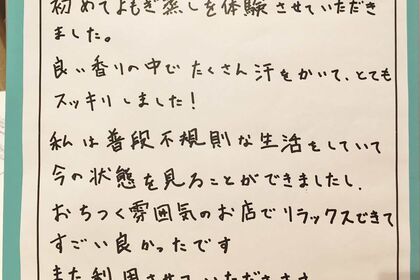 初めてよもぎ蒸しを体験させていただき
ました。
良い香りの中でたくさん汗をかいて、とても
スッキリしました!
私は普段不規則な生活をしていて
今の状態を見ることができましたし、
おちつく雰囲気のお店でリラックスできて
すごい良かったです
また利用させていただきます